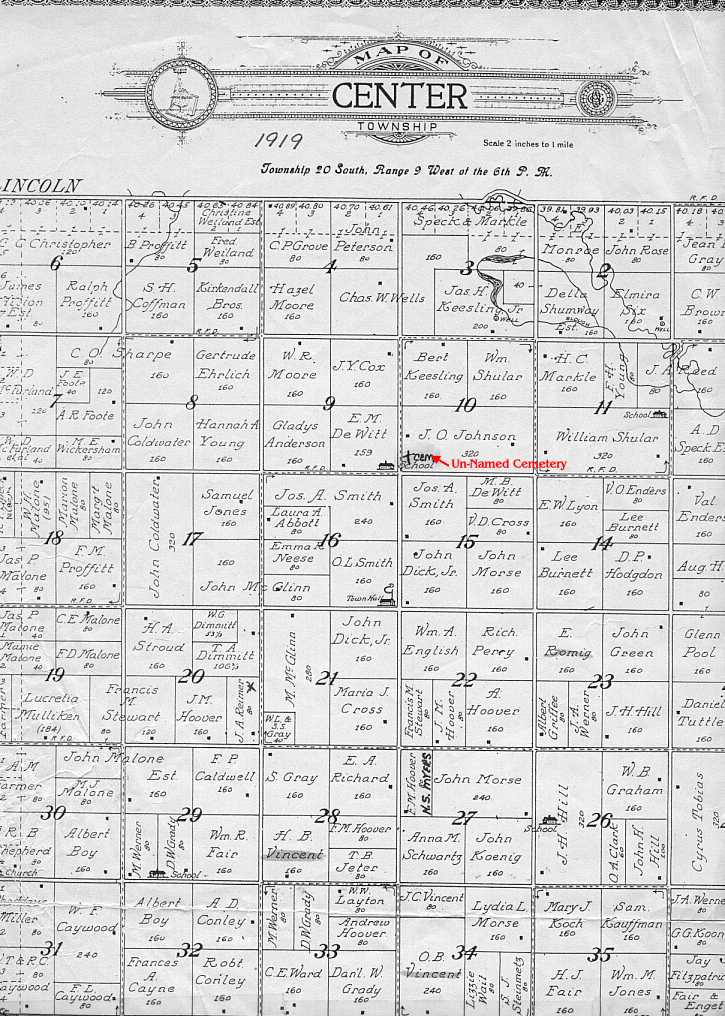 MAP OF
CENTER
TOWNSHIP
1919
Scale 2 inches to 1 mile
Township 20 South, Range 9 West of the 6th P. M.
LINCOLN
R.F.D.
C. G. Christopher
120
6
Ralph
Proffitt
160
B. Proffitt
80
Christine
Weiland Est.
Fred
Weiland
80
5
S. H.
Coffman
160
Kirkendall
Bros.
160
R.F.D.
C.P. Grove
80
John
Peterson
80
4
Hazel
Moore
160
Chas. W. Wells
Speck & Markle
160
3
40
Jas. H.
Keesling, Jr
200
WELL
Monroe
80
John Rose
80
2
Della
Shumway
Est.
160
Elmira
Six
160
WELL
Jean
Gray
80
C. W.
Brown
C. O. Sharpe
160
J. E.
Foote
40
120
7
A.R. Foote
M. E.
Wickersham
80
Gertrude
Ehrlich
160
8
John
Coldwater
160
Hannah A
Young
160
W. R.
Moore
160
J. Y. Cox
160
9
Gladys
Anderson
160
E. M.
De Witt
159
R.F.D.
Bert
Keesling
160
Wm.
Shular
160
10
J. O. Johnson
320
Cem
School
Un-Named Cemetery
H. C.
Markle
160
E. H.
Young
80
J. A. Reed
11
School
William Shular
320
R. F. D.
A. D
Speck E
W. H.
Malone
(95)
Marion
Malone
80
Marg't
Malone
80
18
Jas. P
Malone
80
F. M.
Proffitt
160
R.F.D.
John Coldwater
320
17
Samuel
Jones
160
160
John McGlinn
Jos. A. Smith
240
Laura A.
Abbott
80
16
Emma R.
Neese
80
O. L. Smith
160
Town Hall
Jos. A.
Smith
160
M. B.
DeWitt
80
V. D. Cross
80
15
John
Dick, Jr.
160
John
Morse
160
E. W. Lyon
160
V. O. Enders
80
Lee
Burnett
80
14
Lee
Burnett
160
D. P.
Hodgdon
160
Val
Enders
160
Aug. H
80
Jas. P
Malone
40
Mamie
Malone
40
C. E. Malone
80
F. D. Malone
80
19
Lucretia
Mulliken
(184)
R.F.D.
H. A.
Stroud
160
W. G
Dimmitt
53⅓
T. A.
Dimmitt
106⅔
20
Francis
M.
Stewart
120
80
J. M.
Hoover
160
J. A. Reiner
80
M. McGlinn
280
John
Dick, Jr.
160
21
W. L. &
S. S.
Gray
40
Maria J.
Cross
160
Wm. A.
English
160
Rich.
Perry
160
22
Francis M
Stewart
80
J. M.
Hoover
80
A.
Hoover
160
E.
Romig
160
John
Green
160
23
Albert
Griffee
80
J. A.
Werner
80
J. H. Hill
160
Glenn
Pool
160
Daniel
Tuttle
A M
Farmer
80
John Malone
Est
160
M. J.
Malone
80
30
Albert
Boy
160
Church
F P
Caldwell
160
29
M. Werner
80
D. W. Grady
80
Wm. R.
Fair
160
School
S. Gray
160
E. A
Richard
160
28
H. B.
Vincent
160
F. M. Hoover
80
T. B.
Jeter
80
F. M. Hoover
80
N.S. MYERS
John Morse
240
27
Anna M.
Schwartz
160
John
Koenig
160
J. H. Hill
320
School
W. B.
Graham
160
26
O. A. Clark
60
John H.
Hill
100
Cyrus Tobias
320
W. F
Caywood
240
31
F. L.
Caywood
80
Albert
Boy
160
A D
Conley
160
32
Frances
A
Cayne
160
Robt.
Conley
160
M. Werner
80
D. W. Grady
80
W. W.
Layton
80
Andrew
Hoover
80
33
C. E. Ward
160
Dan'l. W.
Grady
160
J. C. Vincent
80
Lydia L
Morse
160
34
O. B.
Vincent
240
Lizzie
Wail
80
S. J.
Steinmetz
80
Mary J.
Koch
160
Sam.
Kauffman
160
35
H. J.
Fair
160
Wm. M.
Jones
160
J. A. Werne
80
G. G. Koon
80
Jay
Fitzpatri
Fair &
Enget